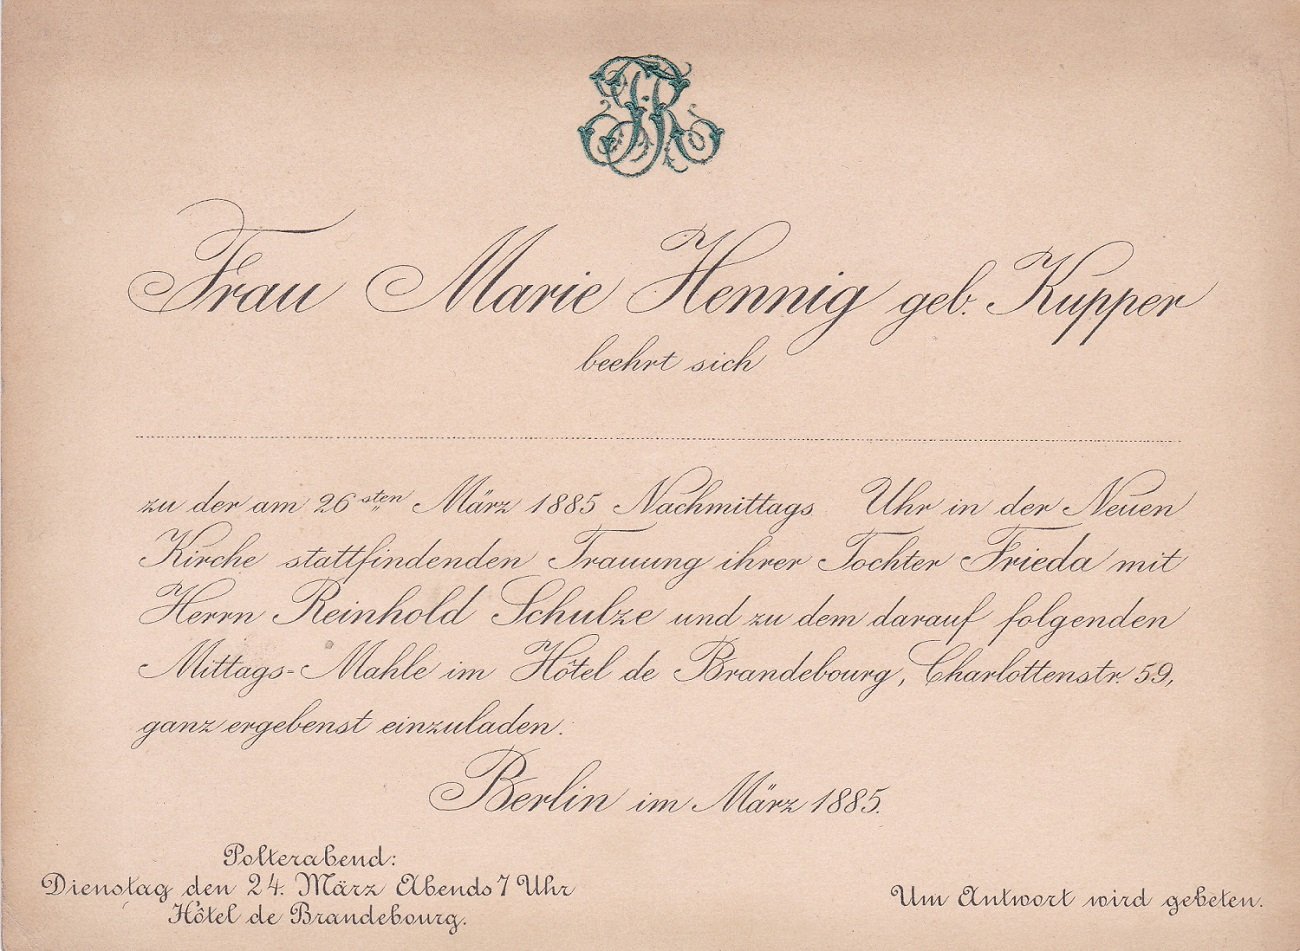 Frau Marie Hennig geb. Kupper
beehrt sich
zu der am 26sten März 1885 Nachmittags Uhr in der Neuen
Kirche stattfindenden Trauung ihrer Tochter Frieda mit
Herrn Reinhold Schulze und zu dem darauf folgenden
Mittags-Mahle im Hôtel de Brandebourg, Charlottenstr. 59,
ganz ergebenst einzuladen.
Berlin im März 1885.
Polterabend:
Dienstag den 24. März Abends 7 Uhr
Hôtel de Brandebourg.
Um Antwort wird gebeten.